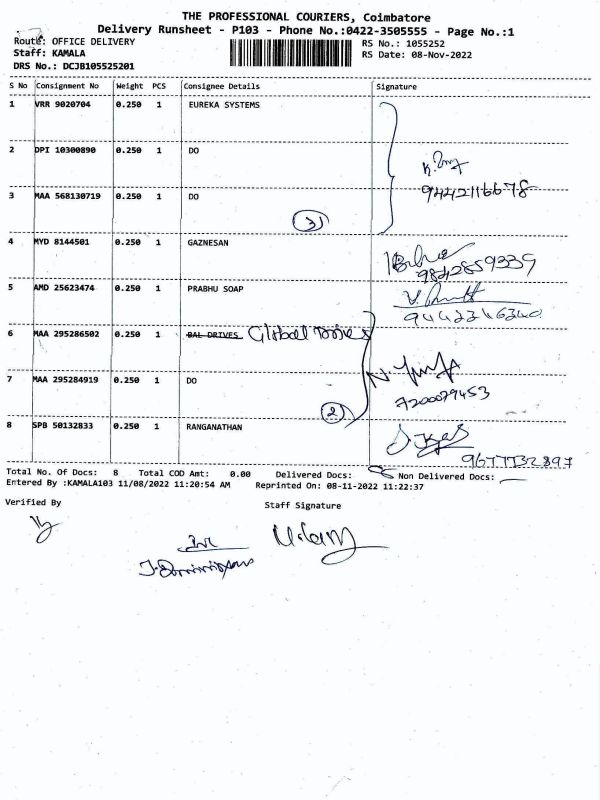 THE PROFESSIONAL COURIERS, Coimbatore
Delivery Runsheet - P103 - Phone No.:0422-3505555 - Page No.:1
Route: OFFICE DELIVERY
RS No.: 1055252
Staff: KAMALA
RS Date: 08-Nov-2022
DRS No.: DCJB105525201
S No Consignment No Weight PCS Consignee Details Signature
1 VRR 9020704 0.250 1 EUREKA SYSTEMS
2 DPI 10300890 0.250 1 DO
9442116678
3 MAA 568130719 0.250 1 DO
3
4 MYD 8144501 0.250 1 GAZNESAN
9842859339
5 AMD 25623474 0.250 1 PRABHU SOAP
6 MAA 295286502 0.250 1 BAL DRIVES Global Drives
7 MAA 295284919 0.250 1 DO
7200079453
2
8 SPB 50132833 0.250 1 RANGANATHAN
9677732897
Total No. Of Docs: 8 Total COD Amt: 0.00 Delivered Docs: 8 Non Delivered Docs: -
Entered By :KAMALA103 11/08/2022 11:20:54 AM Reprinted On: 08-11-2022 11:22:37
Verified By
Staff Signature